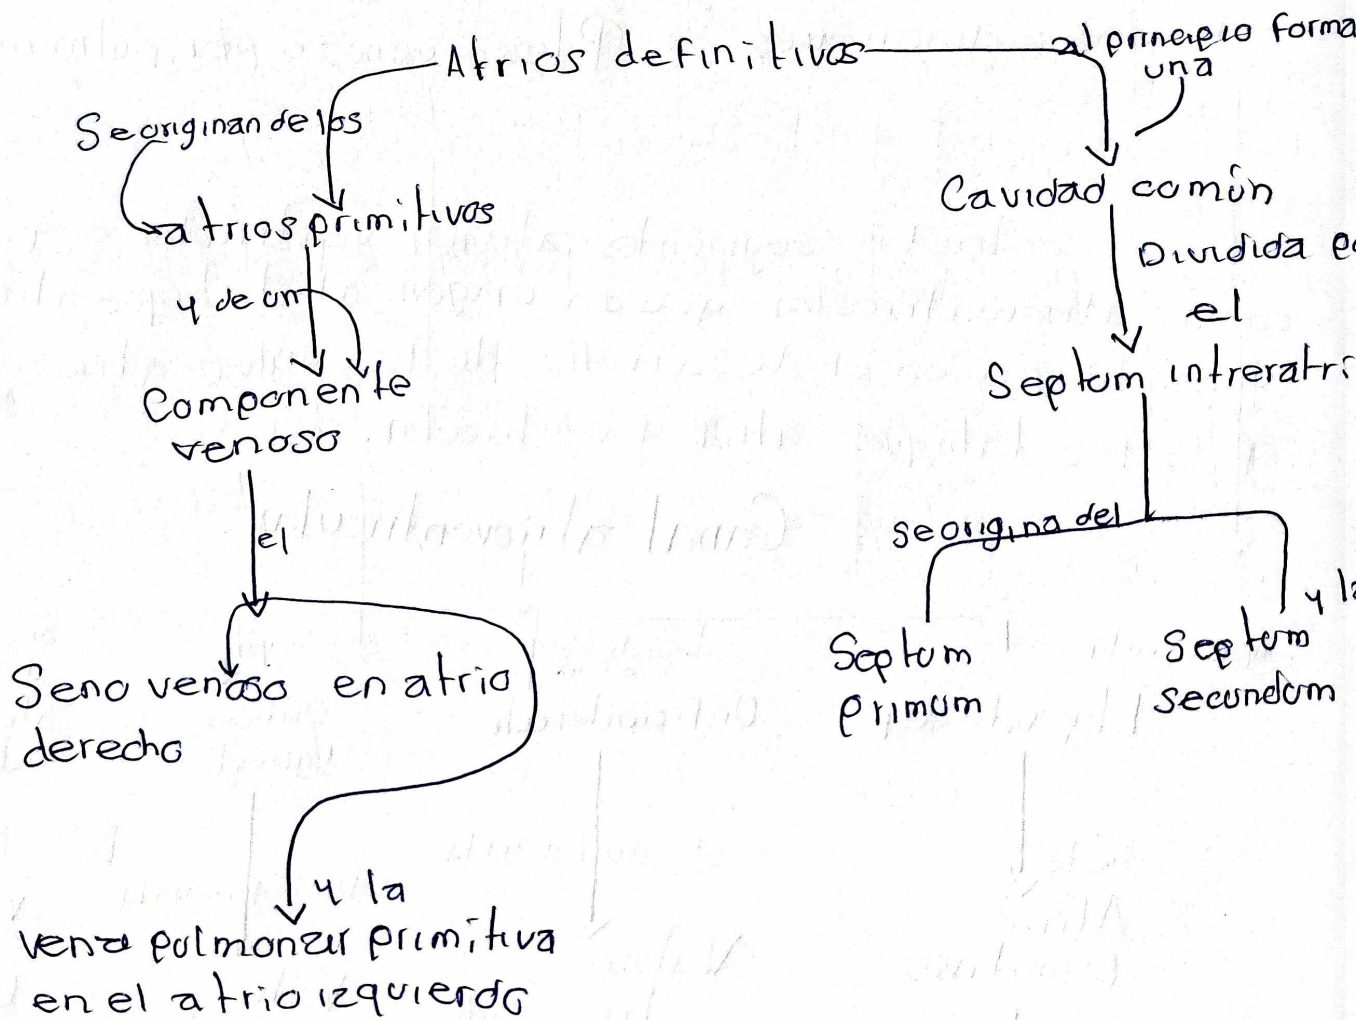 Atrios definitivos
al principio forma
una
Se originan de los
atrios primitivos
y de un
Componente
venoso
el
Seno venoso en atrio
derecho
y la
vena pulmonar primitiva
en el atrio izquierdo
Cavidad común
Dividida
el
Septum intreratri
se origina del
Septum
primum
y la
Septum
secundum